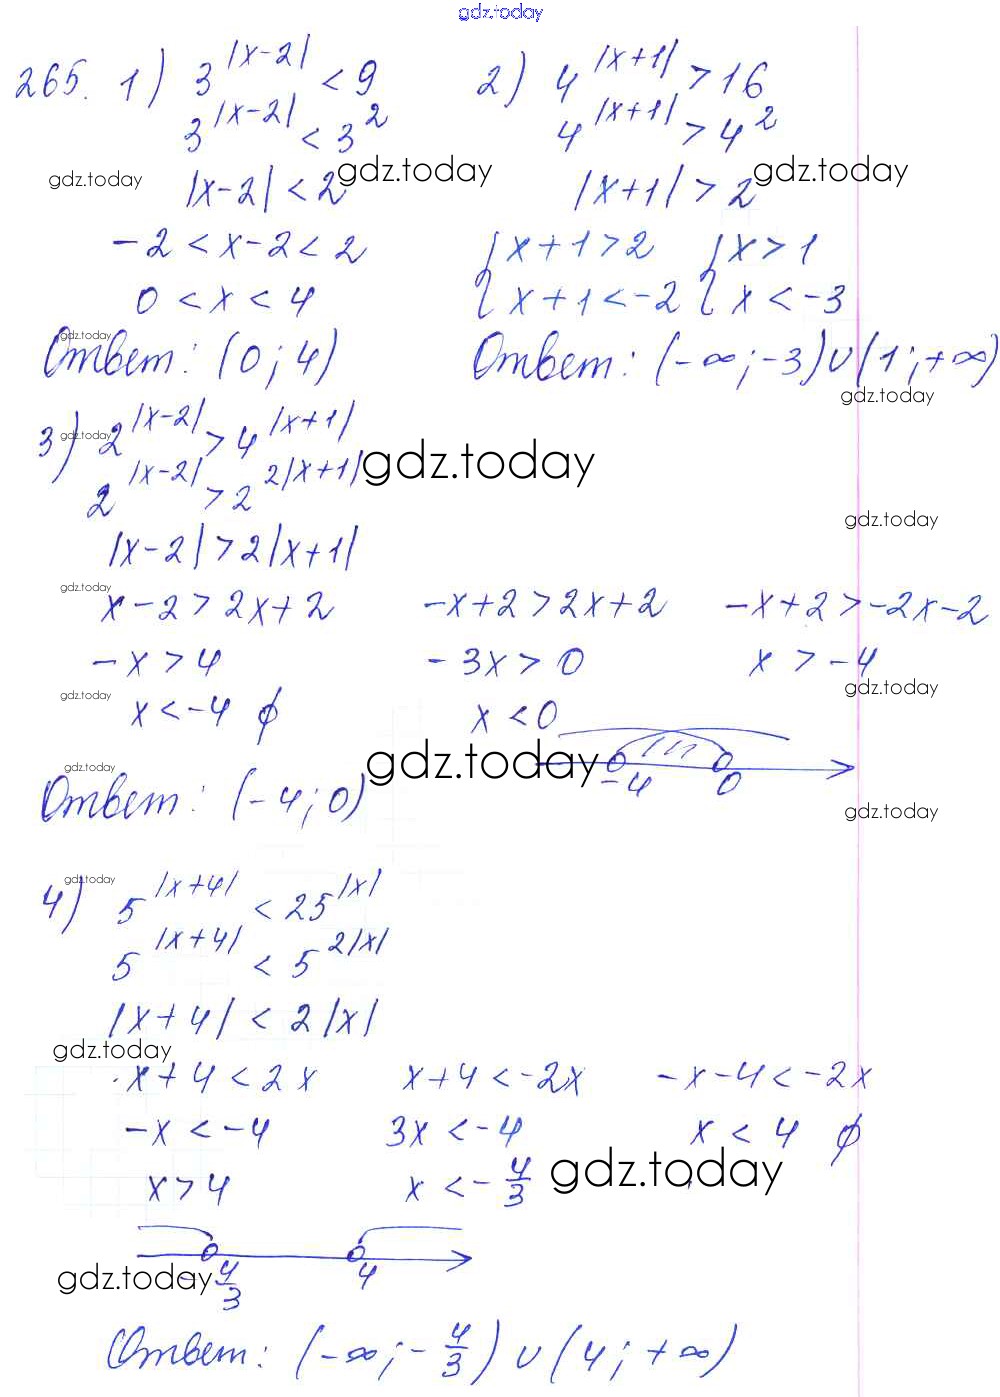 gdz.today
265. 1) 3^|x-2| < 9
3^|x-2| < 3^2
gdz.today gdz.today
|x-2| < 2
-2 < x-2 < 2
0 < x < 4
gdz.today
Ответ: (0; 4)
2) 4^|x+1| > 16
4^|x+1| > 4^2
gdz.today
|x+1| > 2
{ x+1 > 2 { x > 1
{ x+1 < -2 { x < -3
Ответ: (-∞; -3) ∪ (1; +∞)
gdz.today
gdz.today
3) 2^|x-2| > 4^|x+1|
gdz.today
2^|x-2| > 2^2|x+1|
gdz.today
|x-2| > 2|x+1|
gdz.today
x-2 > 2x+2 -x+2 > 2x+2 -x+2 > -2x-2
-x > 4 -3x > 0 x > -4
gdz.today gdz.today
x < -4 ∅ x < 0
gdz.today gdz.today
-4 0
Ответ: (-4; 0)
gdz.today
gdz.today
4) 5^|x+4| < 25^|x|
5^|x+4| < 5^2|x|
|x+4| < 2|x|
gdz.today
x+4 < 2x x+4 < -2x -x-4 < -2x
-x < -4 3x < -4 x < 4 ∅
x > 4 x < -4/3
gdz.today
gdz.today
-4/3 4
Ответ: (-∞; -4/3) ∪ (4; +∞)